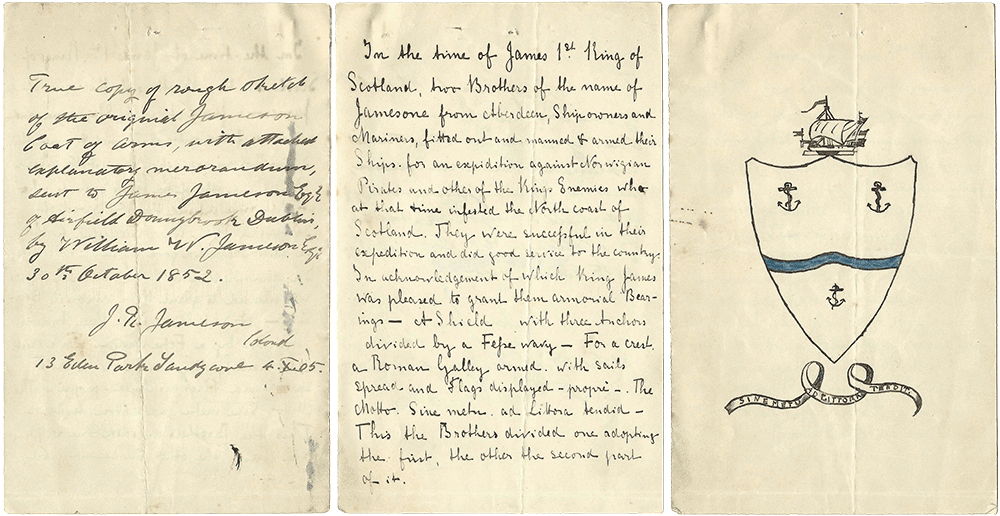 True copy of rough sketch
of the original Jameson
Coat of Arms, with attached
explanatory memorandum,
sent to James Jameson Esqr
of Airfield Donnybrook Dublin,
by William W. Jameson Esqr
30th October 1852.
J. R. Jameson
Colonel
13 Eden Park Sandycove 4. XI. 05.
In the time of James 1st King of
Scotland, two Brothers of the name of
Jamesone from Aberdeen, Ship owners and
Mariners, fitted out and manned & armed their
Ships. for an expedition against Norwigian
Pirates and other of the Kings Enemies who
at that time infested the North coast of
Scotland. They were successful in their
expedition and did good service to the country.
In acknowledgement of which King James
was pleased to grant them armorial Bear-
ings — A Shield with three Anchors
divided by a Fesse wavy — For a crest.
a Roman Galley armed. with sails
spread and Flags displayed - propre -. The
Motto. Sine metu. ad Littora tendid —
This the Brothers divided one adopting
the first, the other the second part
of it.
SINE METU AD LITTORA TENDIT.